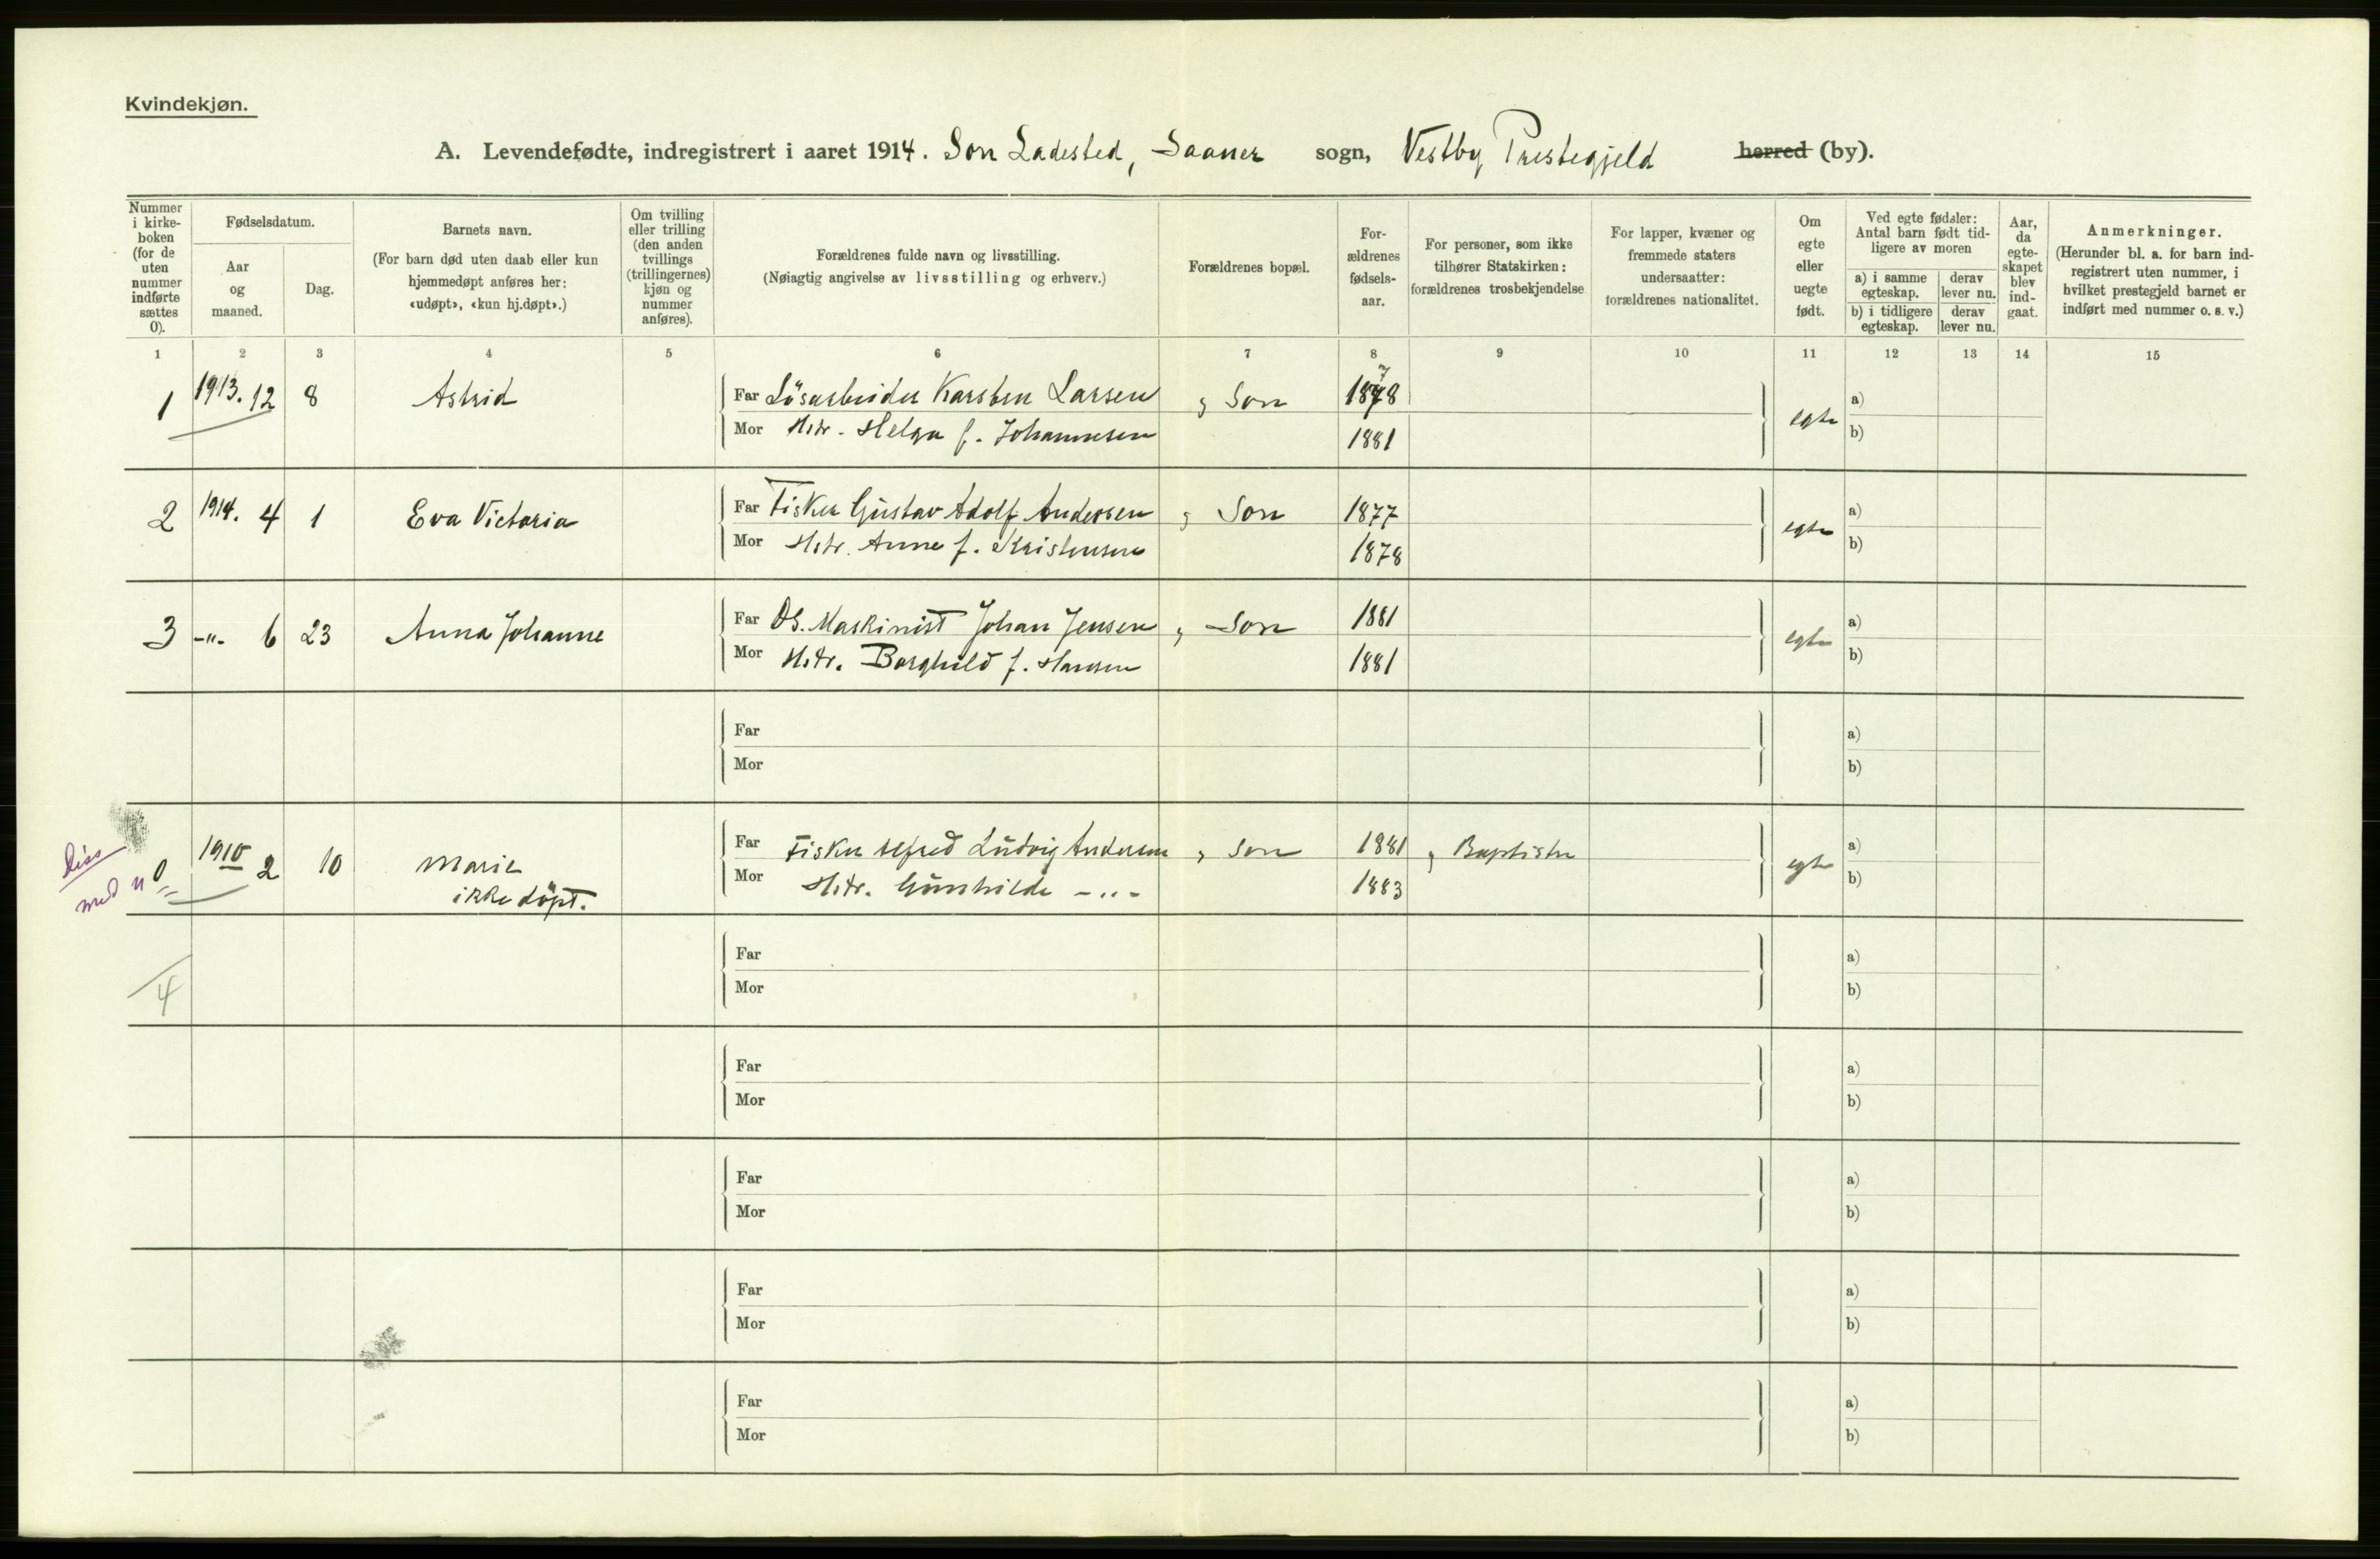 Kvindekjøn.
A. Levendefødte, indregistrert i aaret 1914. Son Ladested, Saaner sogn, Vestby Prestegjeld herred (by).
Nummer i kirke-boken (for de uten nummer indførte sættes 0).
Fødselsdatum.
Aar og maaned.
Dag.
Barnets navn.
(For barn død uten daab eller kun hjemmedøpt anføres her: «udøpt», «kun hj.døpt».)
Om tvilling eller trilling (den anden tvillings (trillingernes) kjøn og nummer anføres).
Forældrenes fulde navn og livsstilling.
(Nøiagtig angivelse av livsstilling og erhverv.)
Forældrenes bopæl.
For-ældrenes fødsels-aar.
For personer, som ikke tilhører Statskirken: forældrenes trosbekjendelse
For lapper, kvæner og fremmede staters undersaatter: forældrenes nationalitet.
Om egte eller uegte født.
Ved egte fødsler: Antal barn født tid-ligere av moren
a) i samme egteskap.
derav lever nu.
b) i tidligere egteskap.
derav lever nu.
Aar, da egte-skapet blev ind-gaat.
Anmerkninger.
(Herunder bl. a. for barn ind-registrert uten nummer, i hvilket prestegjeld barnet er indført med nummer o. s. v.)
1 2 3 4 5 6 7 8 9 10 11 12 13 14 15
1 1913. 12 8 Astrid Far Løsarbeider Karsten Larsen , Son 1878 egte a)
Mor Hstr. Helga f. Johannesen 1881 b)
2 1914. 4 1 Eva Victoria Far Fisker Gustav Adolf Andersen , Son 1877 egte a)
Mor Hstr. Anne f. Kristensen 1878 b)
3 -"- 6 23 Anna Johanne Far DS. Maskinist Johan Jensen , Son 1881 egte a)
Mor Hstr. Borghild f. Hansen 1881 b)
Far a)
Mor b)
Diss med n 0 1910 2 10 Marie Far Fisker Alfred Ludvig Andersen , Son 1881 , Baptister egte a)
ikke døpt. Mor Hstr. Gunhilde -"- 1883 b)
4 Far a)
Mor b)
Far a)
Mor b)
Far a)
Mor b)
Far a)
Mor b)
Far a)
Mor b)